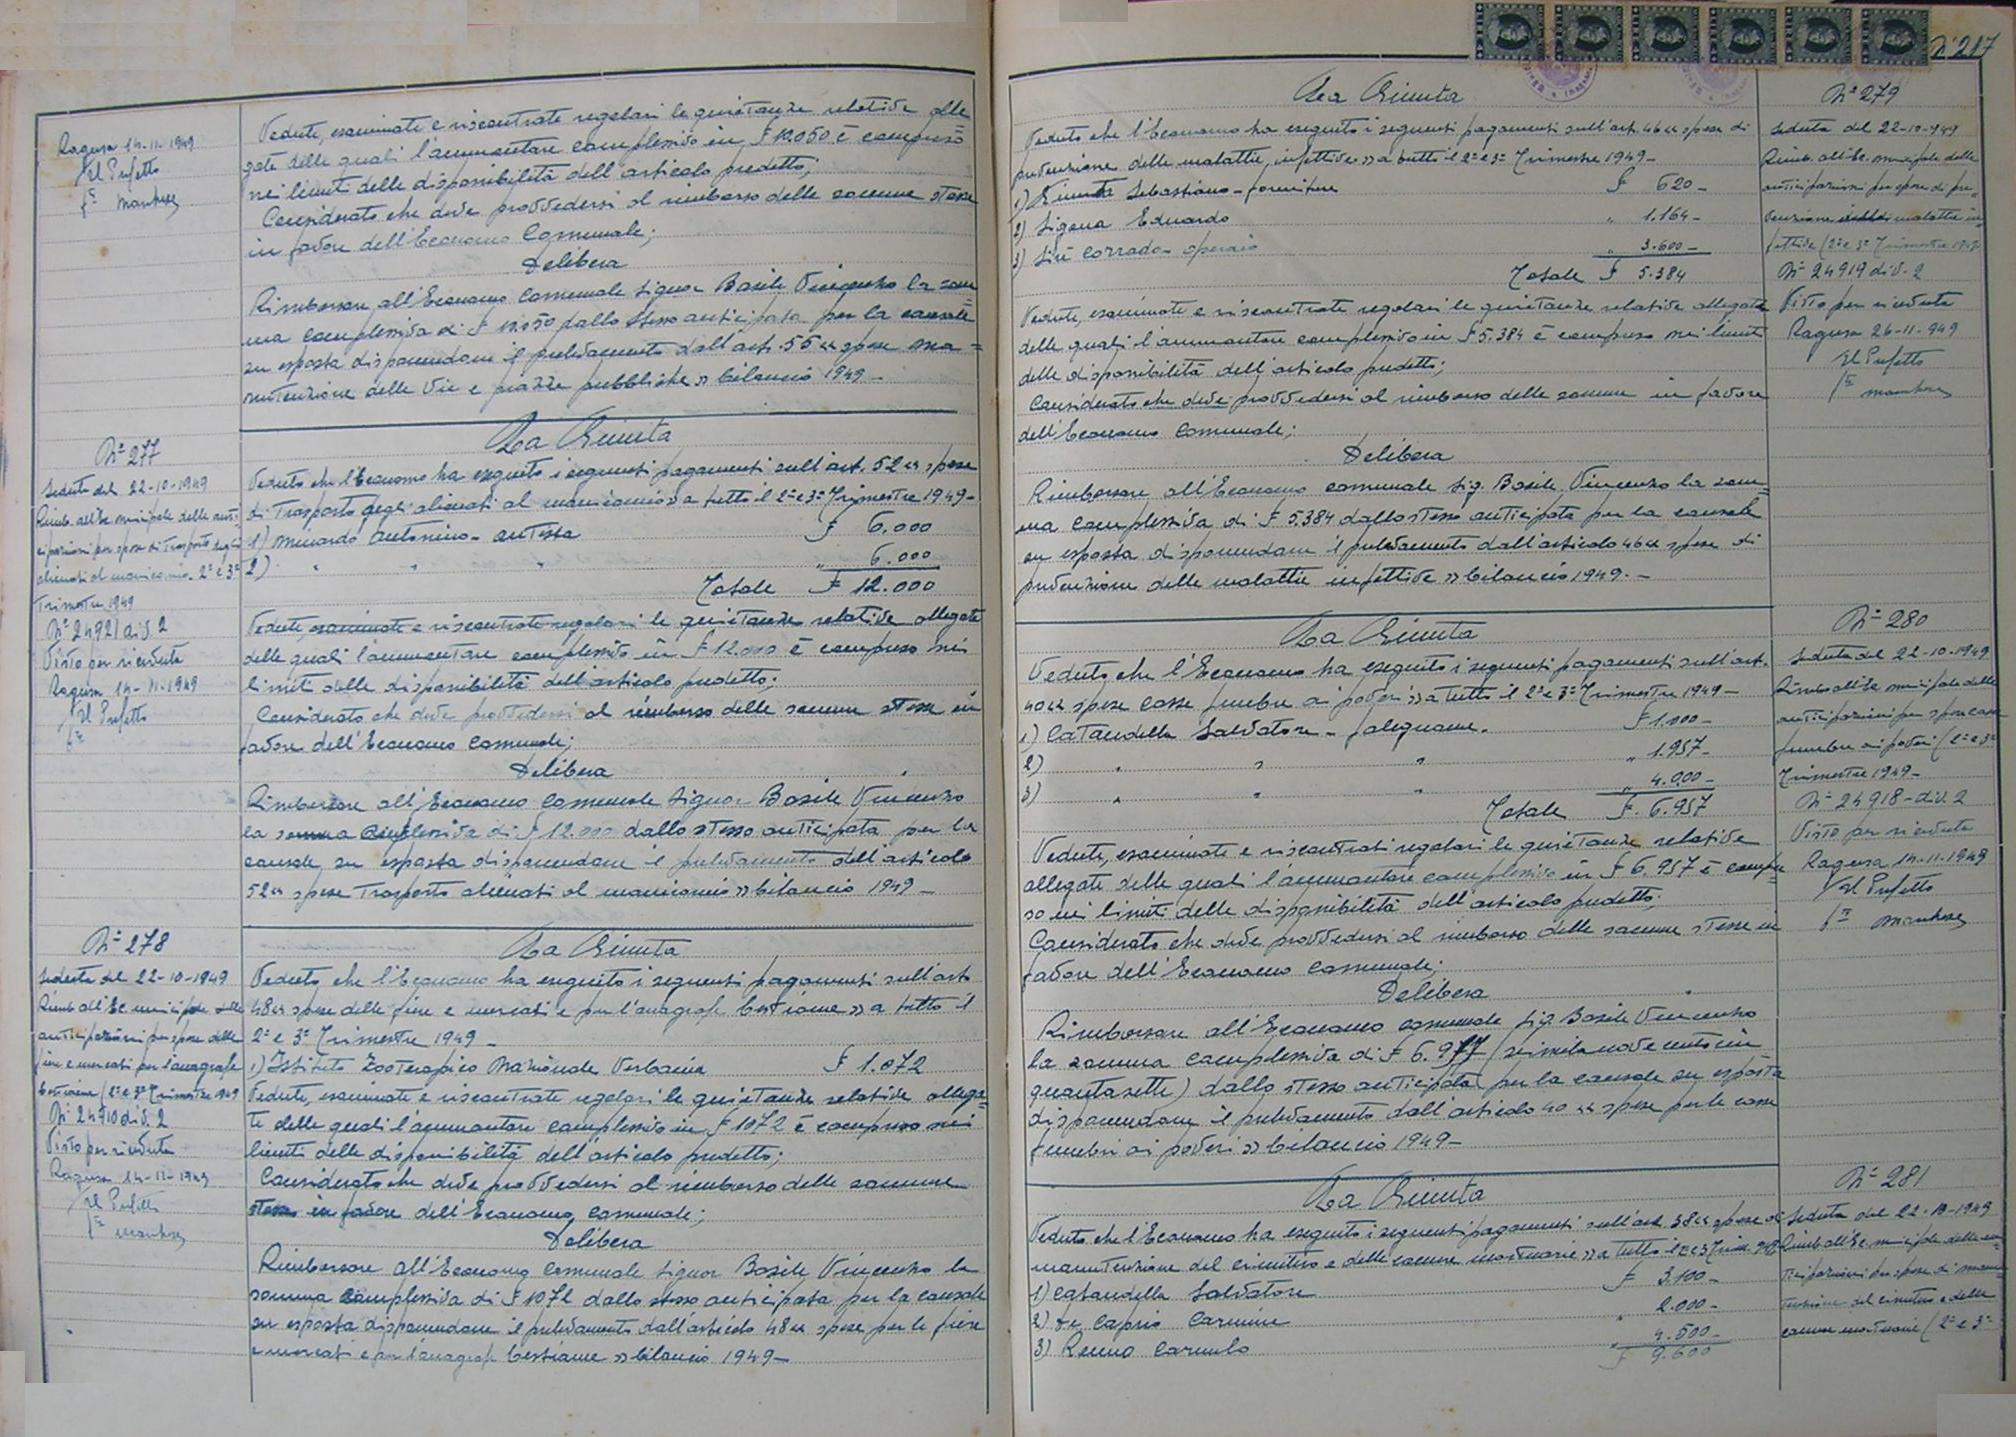 Ragusa 14-11-1949
Il Prefetto
Vedute, esaminate e riscontrate regolari le quietanze relative alle
gate delle quali l'ammontare complessivo in £ 10.050 è compreso
nei limiti delle disponibilità dell'articolo predetto;
Considerato che deve provvedersi al rimborso delle somme stesse
in favore dell'Economo Comunale;
Delibera
Rimborsare all'Economo Comunale Signor Basile Vincenzo la som=
ma complessiva di £ 10.050 dallo stesso anticipata per la causale
su esposta disponendone il prelevamento dall'art. 56 "spese ma=
nutenzione delle Vie e piazze pubbliche" bilancio 1949-
N° 277
Seduta del 22-10-1949
Rimb. all'Ec. municipale delle anti-
cipazioni per spese di Trasporto degli
alienati al manicomio. 2° e 3°
Trimestre 1949
N° 24921 div. 2
Visto per ricevuta
Ragusa 14-11-1949
Il Prefetto
La Giunta
Veduto che l'Economo ha eseguito i seguenti pagamenti sull'art. 52 "spese
di Trasporto degli alienati al manicomio" a tutto il 2° e 3° Trimestre 1949-
1) Minardo Antonino - autista £ 6.000
2) " " " " 6.000
Totale £ 12.000
Vedute, esaminate e riscontrate regolari le quietanze relative allegate
delle quali l'ammontare complessivo in £ 12.000 è compreso nei
limiti delle disponibilità dell'articolo predetto;
Considerato che deve provvedersi al rimborso delle somme stesse in
favore dell'Economo Comunale;
Delibera
Rimborsare all'Economo Comunale Signor Basile Vincenzo
la somma complessiva di £ 12.000 dallo stesso anticipata per la
causale su esposta disponendone il prelevamento dell'articolo
52 "spese Trasporto alienati al manicomio" bilancio 1949-
N° 278
Seduta del 22-10-1949
Rimb. all'Ec. municipale delle
anticipazioni per spese delle
fiere e mercati per l'anagrafe
bestiame (2° e 3° Trimestre 1949
N° 24910 div. 2
Visto per ricevuta
Ragusa 14-11-1949
Il Prefetto
La Giunta
Veduto che l'Economo ha eseguito i seguenti pagamenti sull'art.
48 "spese delle fiere e mercati e per l'anagrafe bestiame" a tutto il
2° e 3° Trimestre 1949-
1) Istituto Zooterapico Nazionale Verbania £ 1.072
Vedute, esaminate e riscontrate regolari le quietanze relative allega=
te delle quali l'ammontare complessivo in £ 1072 è compreso nei
limiti delle disponibilità dell'articolo predetto;
Considerato che deve provvedersi al rimborso delle somme
stesse in favore dell'Economo Comunale;
Delibera
Rimborsare all'Economo Comunale Signor Basile Vincenzo la
somma complessiva di £ 1072 dallo stesso anticipata per la causale
su esposta disponendone il prelevamento dall'articolo 48 "spese per le fiere
e mercati e per l'anagrafe bestiame" bilancio 1949-
N° 217
La Giunta
Veduto che l'Economo ha eseguito i seguenti pagamenti sull'art. 46 "spese di
prevenzione delle malattie infettive" a tutto il 2° e 3° Trimestre 1949-
1) Giunta Sebastiano - fornitore £ 620-
2) Sigona Eduardo " 1.164-
3) Siri Corrado - operaio " 3.600-
Totale £ 5.384
Vedute, esaminate e riscontrate regolari le quietanze relative allegate
delle quali l'ammontare complessivo in £ 5.384 è compreso nei limiti
delle disponibilità dell'articolo predetto;
Considerato che deve provvedersi al rimborso delle somme in favore
dell'Economo Comunale;
Delibera
Rimborsare all'Economo comunale Sig. Basile Vincenzo la som=
ma complessiva di £ 5.384 dallo stesso anticipata per la causale
su esposta disponendone il prelevamento dall'articolo 46 "spese di
prevenzione delle malattie infettive" bilancio 1949.-
N° 279
Seduta del 22-10-949
Rimb. all'Ec. municipale delle
anticipazioni per spese di pre-
venzione malattie in-
fettive (2° e 3° Trimestre 1949-
N° 24919 div. 2
Visto per ricevuta
Ragusa 26-11-949
Il Prefetto
La Giunta
Veduto che l'Economo ha eseguito i seguenti pagamenti sull'art.
40 "spese casse funebre ai poveri" a tutto il 2° e 3° Trimestre 1949-
1) Cataudella Salvatore - falegname. £ 1.000-
2) " " " " 1.957-
3) " " " " 4.000-
Totale £. 6.957
Vedute, esaminate e riscontrati regolari le quietanze relative
allegate delle quali l'ammontare complessivo in £ 6.957 è compre=
so nei limiti delle disponibilità dell'articolo predetto;
Considerato che deve provvedersi al rimborso delle somme stesse in
favore dell'Economo Comunale;
Delibera
Rimborsare all'Economo comunale Sig. Basile Vincenzo
la somma complessiva di £ 6.957 (seimilanovecentocin
quantasette) dallo stesso anticipata per la causale su esposta
disponendone il prelevamento dall'articolo 40 "spese per le casse
funebri ai poveri" bilancio 1949-
N° 280
Seduta del 22-10-1949
Rimb. all'Ec. municipale delle
anticipazioni per spese casse
funebre ai poveri (2° e 3°
Trimestre 1949-
N° 24918-div. 2
Visto per ricevuta
Ragusa 14-11-1949
Il Prefetto
La Giunta
Veduto che l'Economo ha eseguito i seguenti pagamenti sull'art. 38 "spese di
manutenzione del cimitero e delle camere mortuarie" a tutto il 2° e 3° Trim. 949
1) Cataudella Salvatore £ 3.100-
2) De Caprio Carmine " 2.000-
3) Renno Carmelo " 4.500-
£ 9.600
N° 281
Seduta del 22-10-1949
Rimb. all'Ec. municipale delle an-
ticipazioni per spese di manu-
tenzione del cimitero e delle
camere mortuarie (2° e 3°